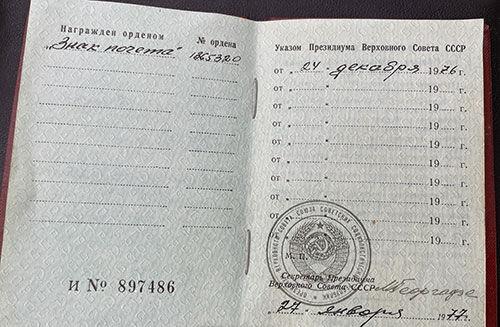 Награжден орденом
№ ордена
„Знак почета"
Указом Президиума Верховного Совета СССР
от „ 24 " декабря 1976 г.
от „ " 19 г.
от „ " 19 г.
от „ " 19 г.
от „ " 19 г.
от „ " 19 г.
от „ " 19 г.
от „ " 19 г.
от „ " 19 г.
М. П.
Секретарь Президиума
Верховного Совета СССР МГеоргадзе
И № 897486
„ 27 " января 1977 г.